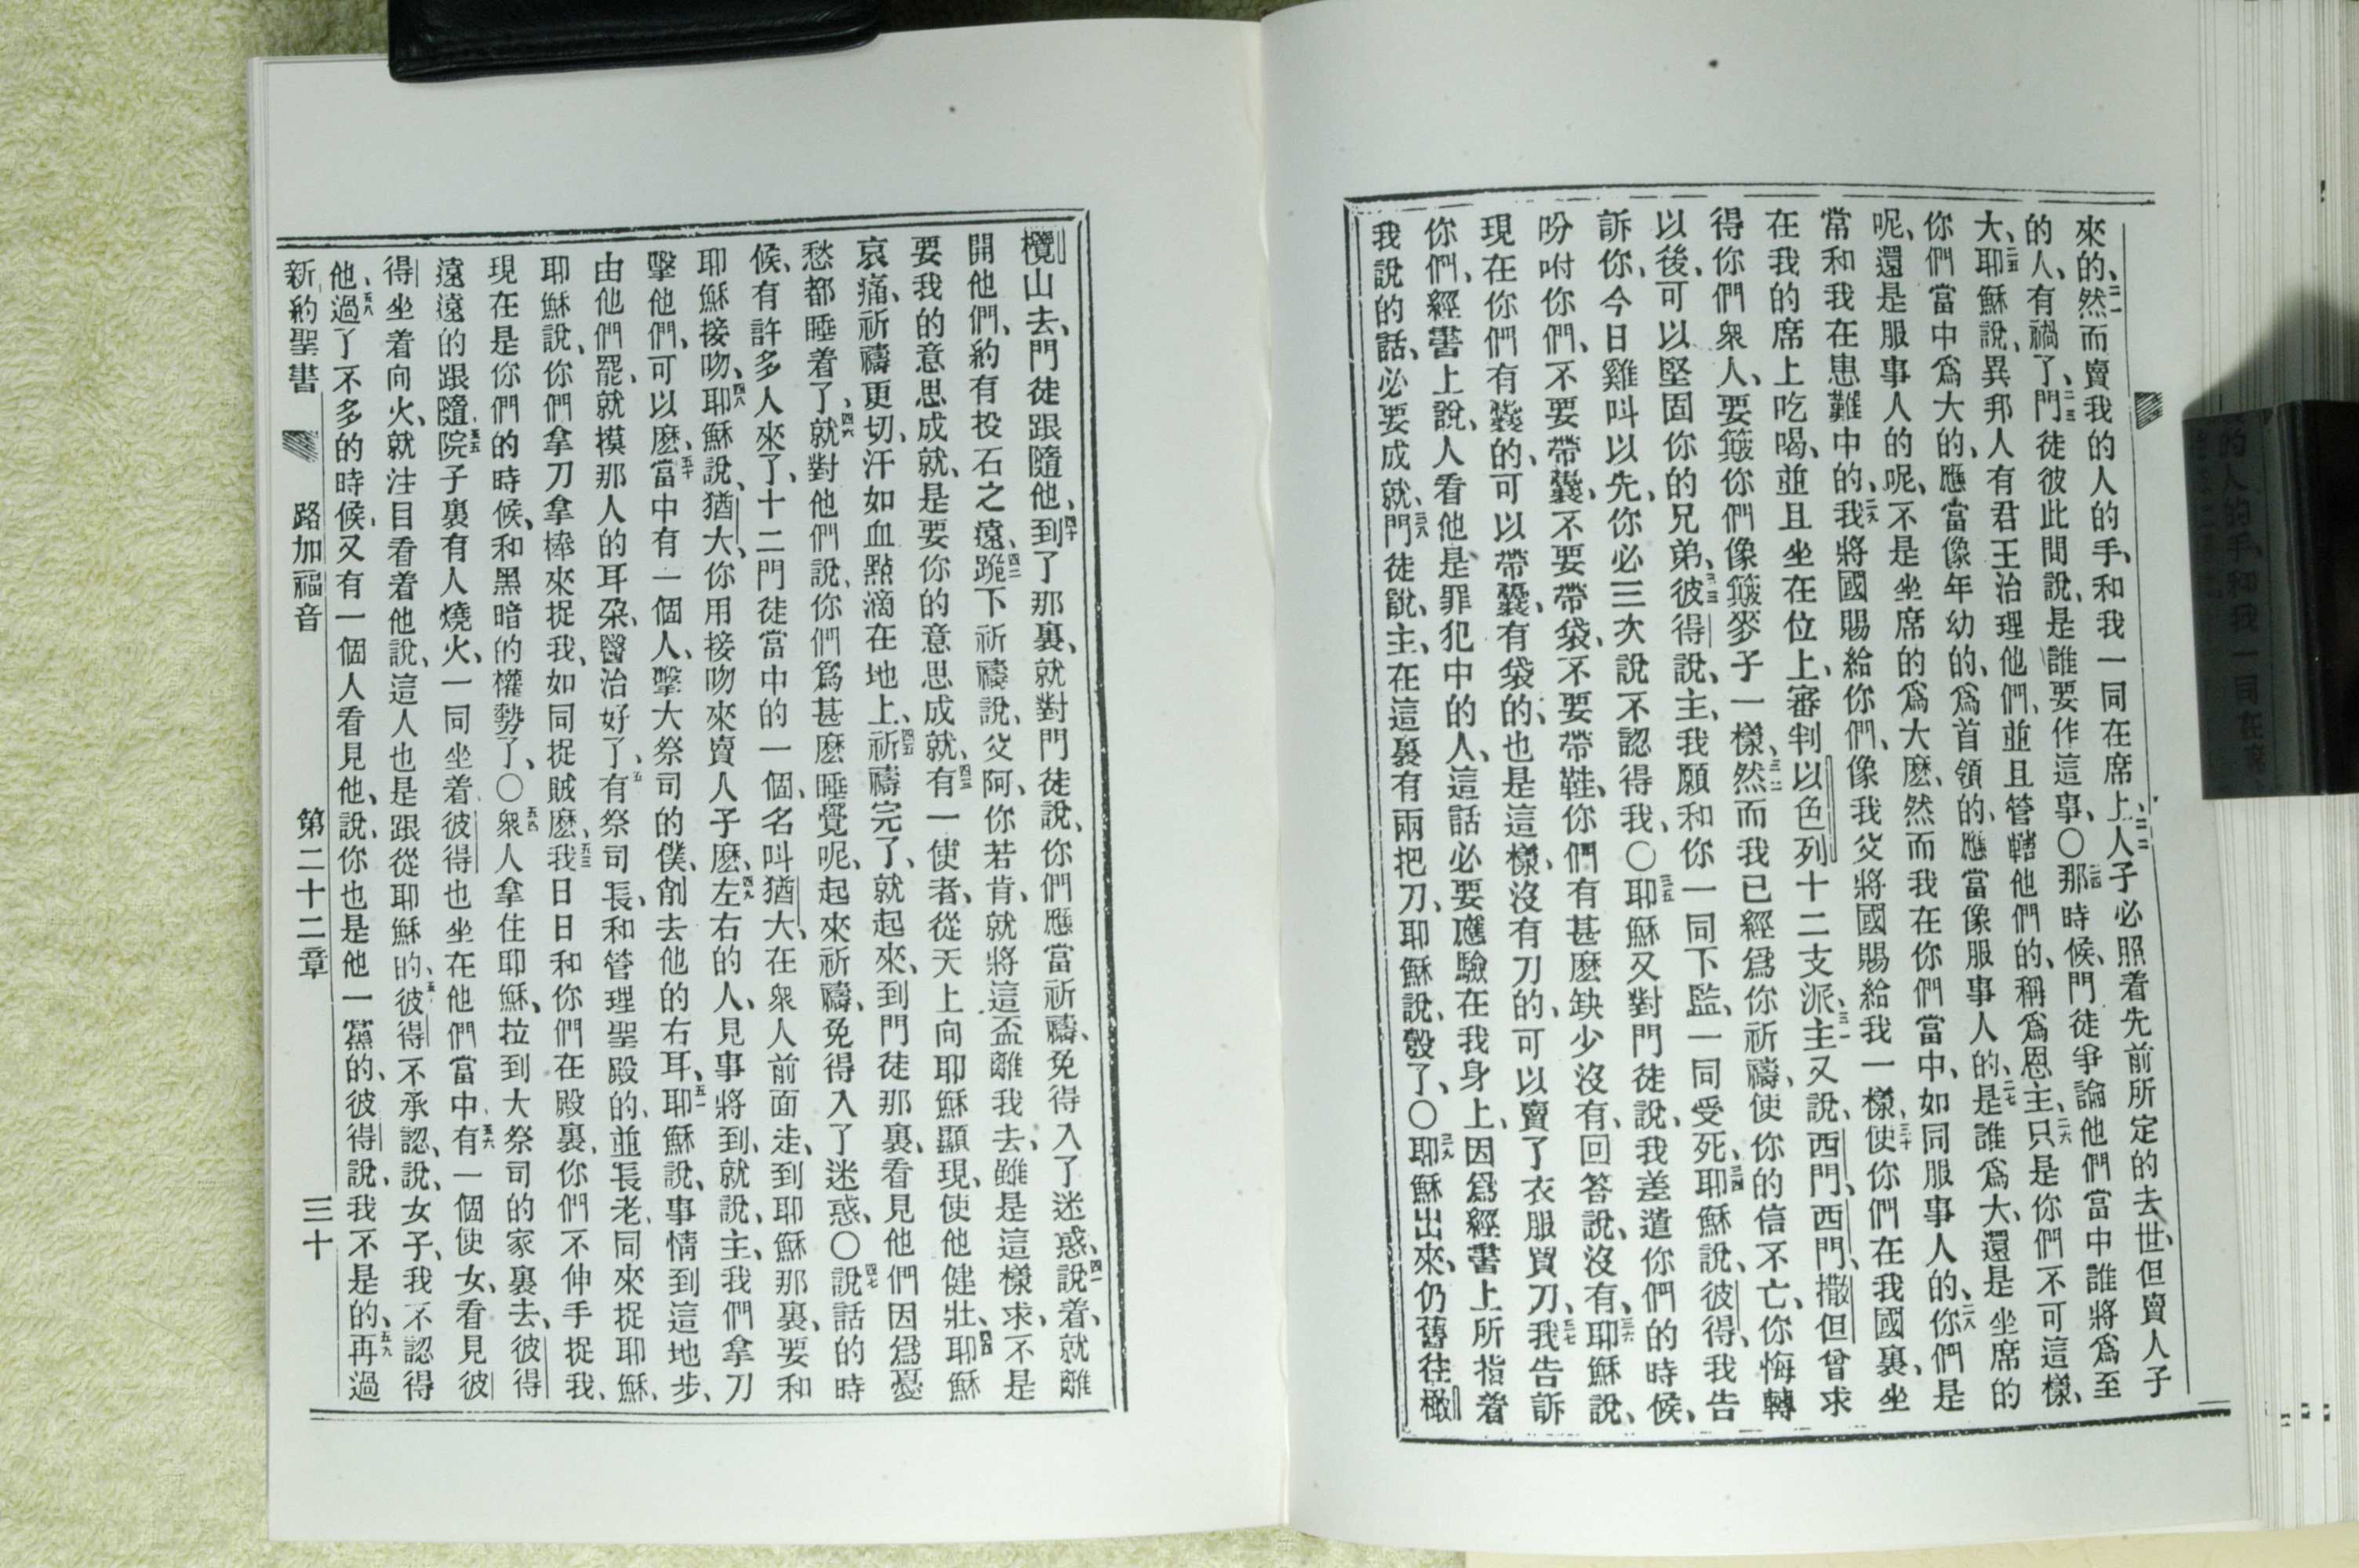 來的、二一然而賣我的人的手、和我一同在席上、二二人子必照着先前所定的去世、但賣人子
的人、有禍了、二三門徒彼此問說、是誰要作這事、〇二四那時候、門徒爭論他們當中誰將爲至
大、二五耶穌說、異邦人有君王治理他們、並且管轄他們的、稱爲恩主、二六只是你們不可這樣、
你們當中爲大的、應當像年幼的、爲首領的、應當像服事人的、二七是誰爲大、還是坐席的
呢、還是服事人的呢、不是坐席的爲大麽、然而我在你們當中、如同服事人的、二八你們是
常和我在患難中的、二九我將國賜給你們、像我父將國賜給我一樣、三十使你們在我國裏、坐
在我的席上吃喝、並且坐在位上、審判以色列十二支派、三一主又說、西門、西門、撒但曾求
得你們衆人、要簸你們像簸麥子一樣、三二然而我已經爲你祈禱、使你的信不亡、你悔轉
以後、可以堅固你的兄弟、三三彼得說、主、我願和你一同下監、一同受死、三四耶穌說、彼得、我告
訴你、今日雞叫以先、你必三次說不認得我、〇三五耶穌又對門徒說、我差遣你們的時候、
吩咐你們、不要帶囊、不要帶袋、不要帶鞋、你們有甚麽缺少沒有、回答說、沒有、三六耶穌說、
現在你們有囊的、可以帶囊、有袋的、也是這樣、沒有刀的、可以賣了衣服買刀、三七我告訴
你們、經書上說、人看他是罪犯中的人、這話必要應驗在我身上、因爲經書上所指着
我說的話、必要成就、三八門徒說、主、在這裏有兩把刀、耶穌說、彀了、〇三九耶穌出來、仍舊往橄
欖山去、門徒跟隨他、四十到了那裏、就對門徒說、你們應當祈禱、免得入了迷惑、四一說着、就離
開他們、約有投石之遠、四二跪下祈禱說、父阿、你若肯、就將這盃離我去、雖是這樣求、不是
要我的意思成就、是要你的意思成就、四三有一使者、從天上向耶穌顯現、使他健壯、四四耶穌
哀痛、祈禱更切、汗如血點滴在地上、四五祈禱完了、就起來、到門徒那裏、看見他們因爲憂
愁都睡着了、四六就對他們說、你們爲甚麽睡覺呢、起來祈禱、免得入了迷惑、〇四七說話的時
候、有許多人來了、十二門徒當中的一個、名叫猶大、在衆人前面走、到耶穌那裏、要和
耶穌接吻、四八耶穌說、猶大、你用接吻來賣人子麽、四九左右的人、見事將到、就說、主、我們拿刀
擊他們、可以麽、五十當中有一個人、擊大祭司的僕、削去他的右耳、五一耶穌說、事情到這地步、
由他們罷、就摸那人的耳朶、醫治好了、五二有祭司長、和管理聖殿的、並長老、同來捉耶穌、
耶穌說、你們拿刀拿棒來捉我、如同捉賊麽、五三我日日和你們在殿裏、你們不伸手捉我、
現在是你們的時候、和黑暗的權勢了、〇五四衆人拿住耶穌、拉到大祭司的家裏去、彼得
遠遠的跟隨、五五院子裏有人燒火、一同坐着、彼得也坐在他們當中、五六有一個使女、看見彼
得坐着向火、就注目看着他說、這人也是跟從耶穌的、五七彼得不承認、說、女子、我不認得
他、五八過了不多的時候、又有一個人看見他、說、你也是他一黨的、彼得說、我不是的、五九再過
新約聖書 路加福音 第二十二章 三十